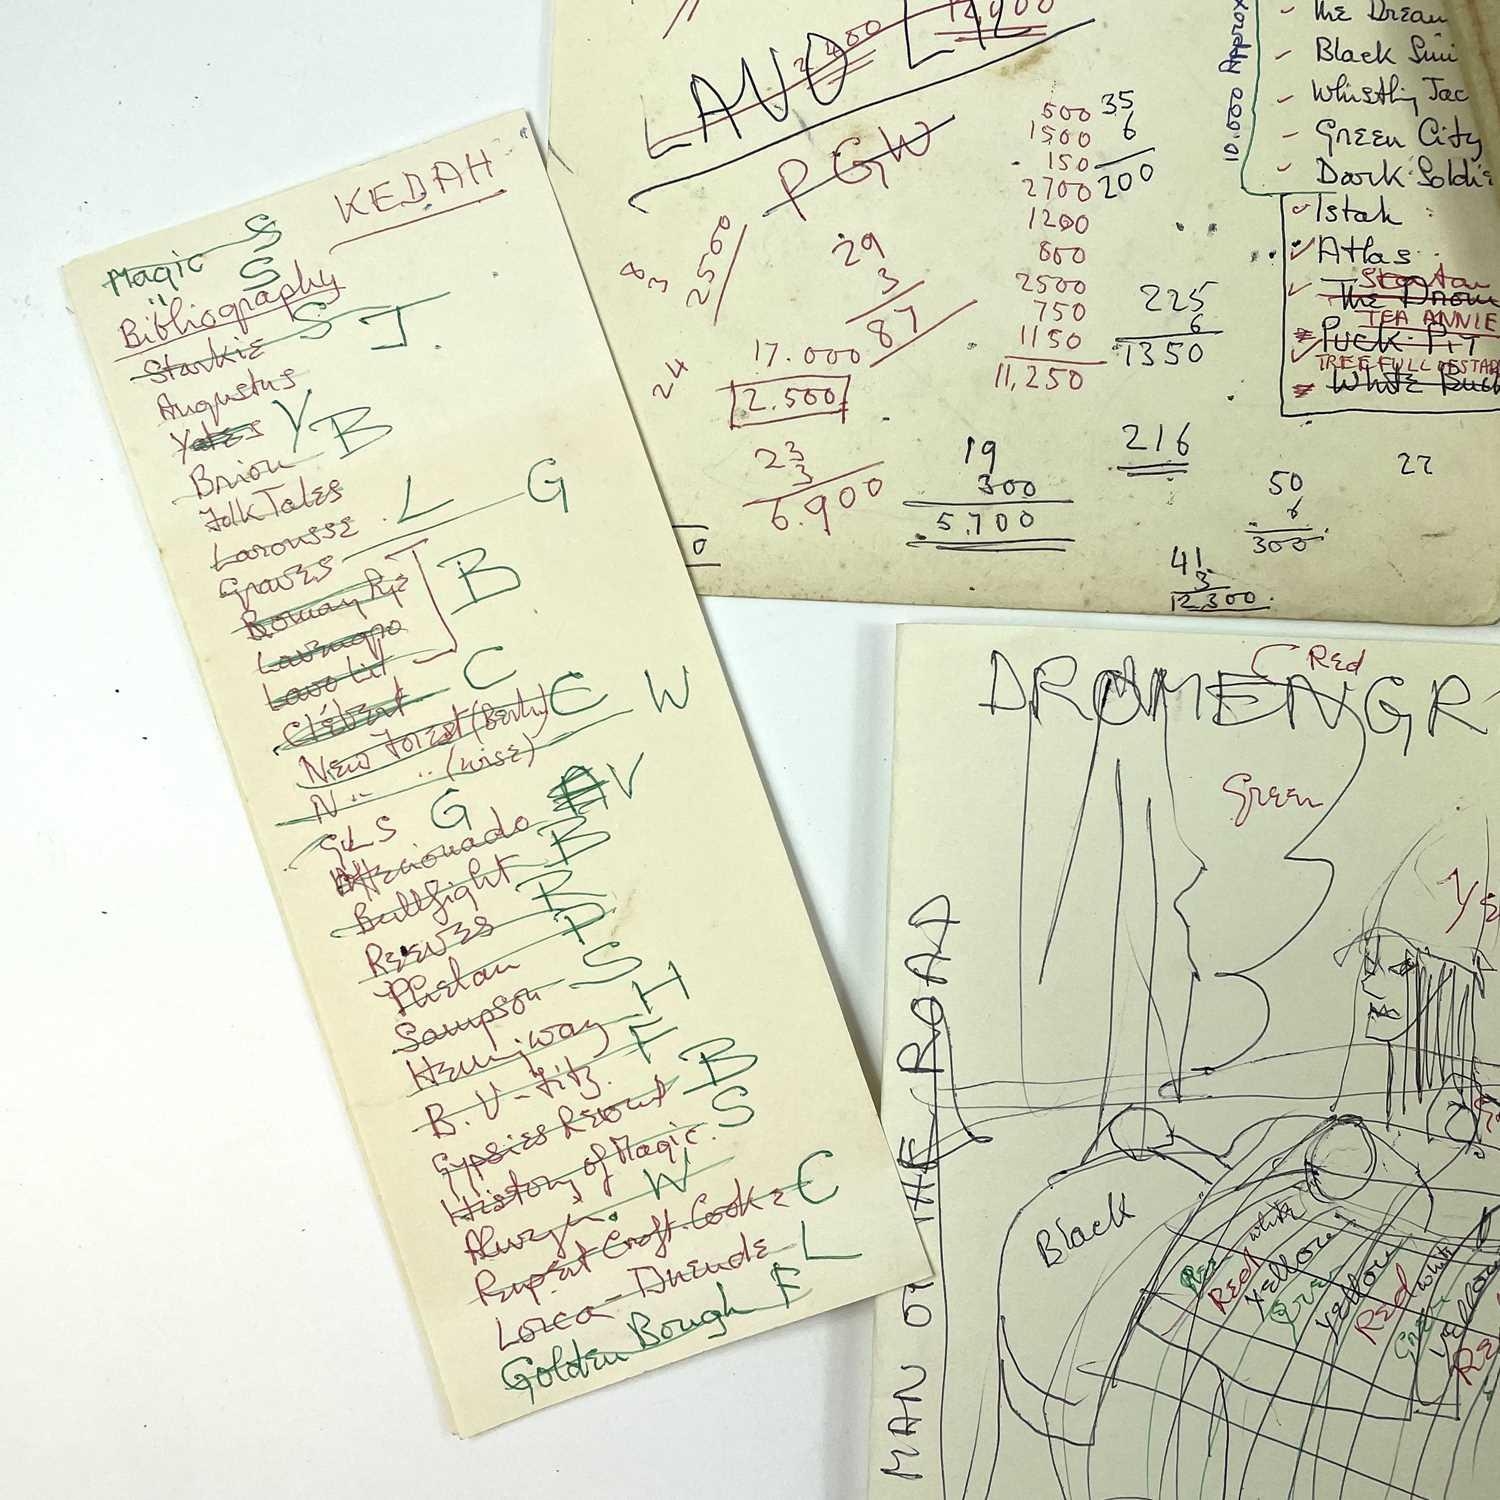 KEDAH
Magic S
" S
Bibliography
Starkie S
J
Augustus
Y
Brion B
Folk Tales
Larousse L
Graves G
Romany Rye
Lavengro B
Lavo Lil
Clébert C
New Forest (Berlin) C
N " " (wise) W
GLS G
Afficionado AV
Bullfight B
Reeves R
Phelan P
Sampson S
Hemingway H
B. V-Fitz. F
Gypsies Round B
History of Magic S
W
Rupert Croft-Cooke C
Lorca-Duende L
Golden Bough F
2,400
12,000
LAVO LIL
PGW
500
1500
150
2700
1200
800
2500
750
1150
11,250
35
6
200
8
3
2500
29
3
87
24
17.000
2.500
23
3
6.900
19
300
5.700
225
6
1350
216
50
6
300
41
3
12,300
22
0
10.000 Approx
The Dream
Black
Whistling Jac
Green City
Dark Soldie
Istak
Atlas
The
TEA ANNIE
PUCK PIT
TREE FULL OF STAR
White
DROMENGR
Red
Green
Ye
MAN OF THE ROAD
Black
Red
white
Yellow
Green
Yellow
Red
white
Green
Yellow
Re